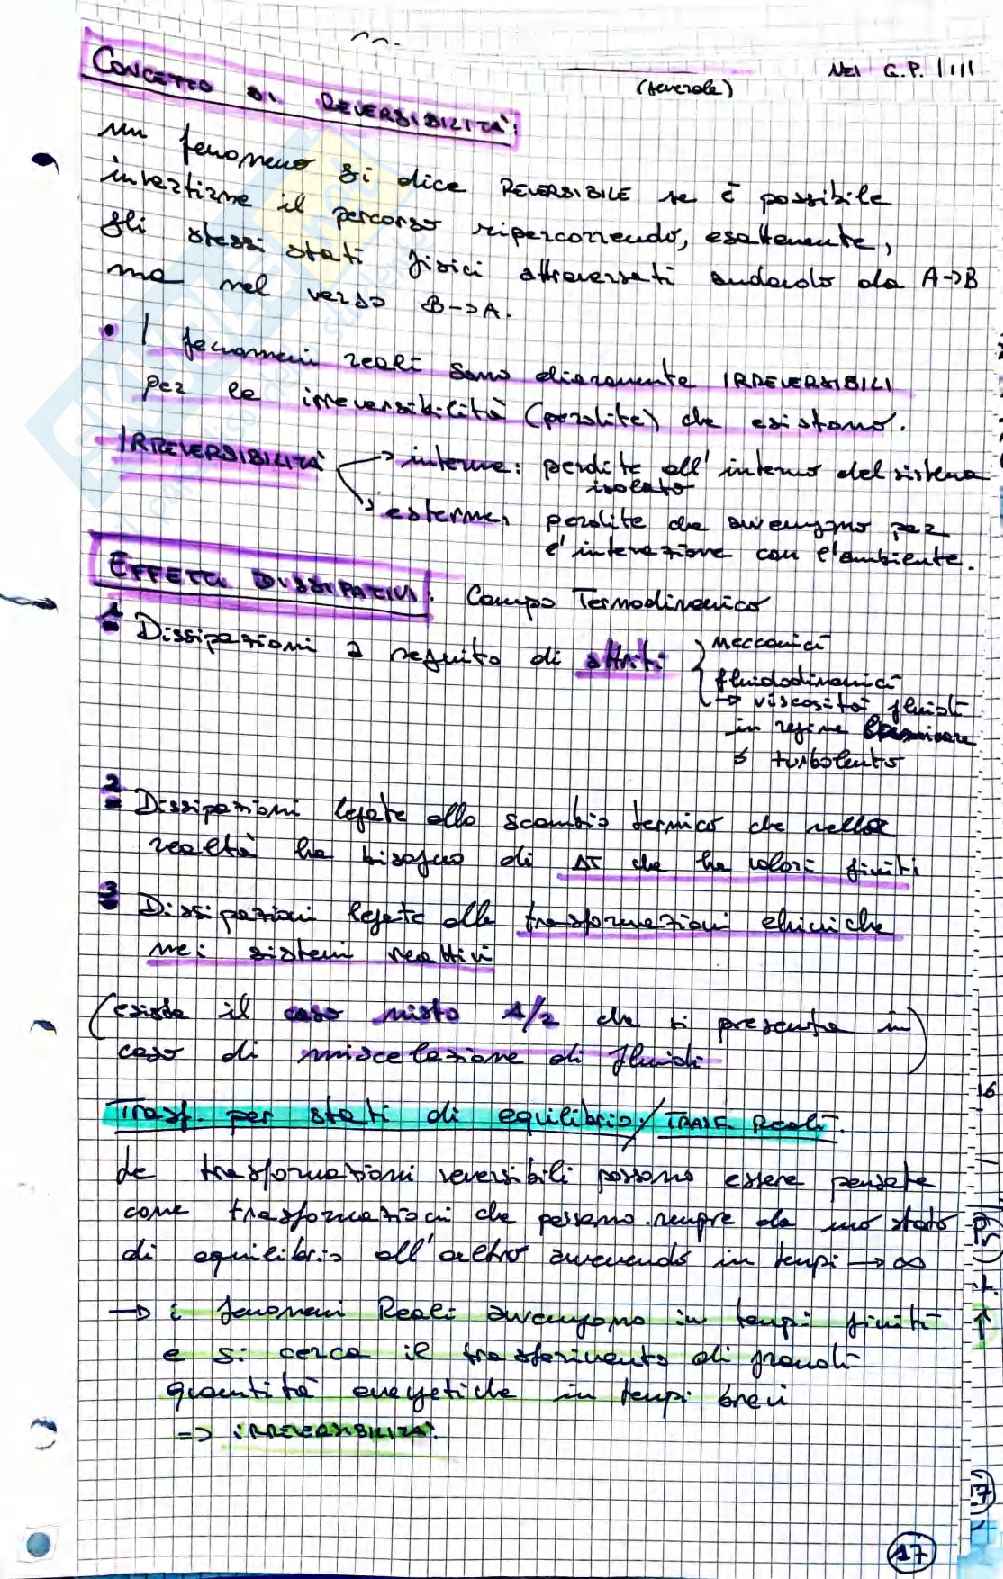 NEI G.P.
(generale)
CONCETTO DI REVERSIBILITÀ:
un fenomeno si dice REVERSIBILE se è possibile
invertirne il percorso ripercorrendo, esattamente,
gli stessi stati fisici attraversati andando da A->B
ma nel verso B->A.
• I fenomeni reali sono chiaramente IRREVERSIBILI
per le irreversibilità (perdite) che esistono.
IRREVERSIBILITÀ -> interne: perdite all'interno del sistema
isolato
-> esterne, perdite che avvengono per
l'interazione con l'ambiente.
EFFETTI DISSIPATIVI: Campo Termodinamico
1 Dissipazioni a seguito di attriti meccanici
fluidodinamici
-> viscosità fluidi
in regime laminare
o turbolento
2 Dissipazioni legate allo scambio termico che nella
realtà ha bisogno di ΔT che ha valori finiti
3 Dissipazioni legate alle trasformazioni chimiche
nei sistemi reattivi
(esiste il caso misto 1/2 che si presenta in
caso di miscelazione di fluidi)
16
Trasf. per stati di equilibrio / TRASF. Reali.
Le trasformazioni reversibili possono essere pensate
come trasformazioni che passano sempre da uno stato
di equilibrio all'altro avvenendo in tempi -> ∞
-> i fenomeni Reali avvengono in tempi finiti
e si cerca il trasferimento di grandi
quantità energetiche in tempi brevi
=> IRREVERSIBILITÀ.
17